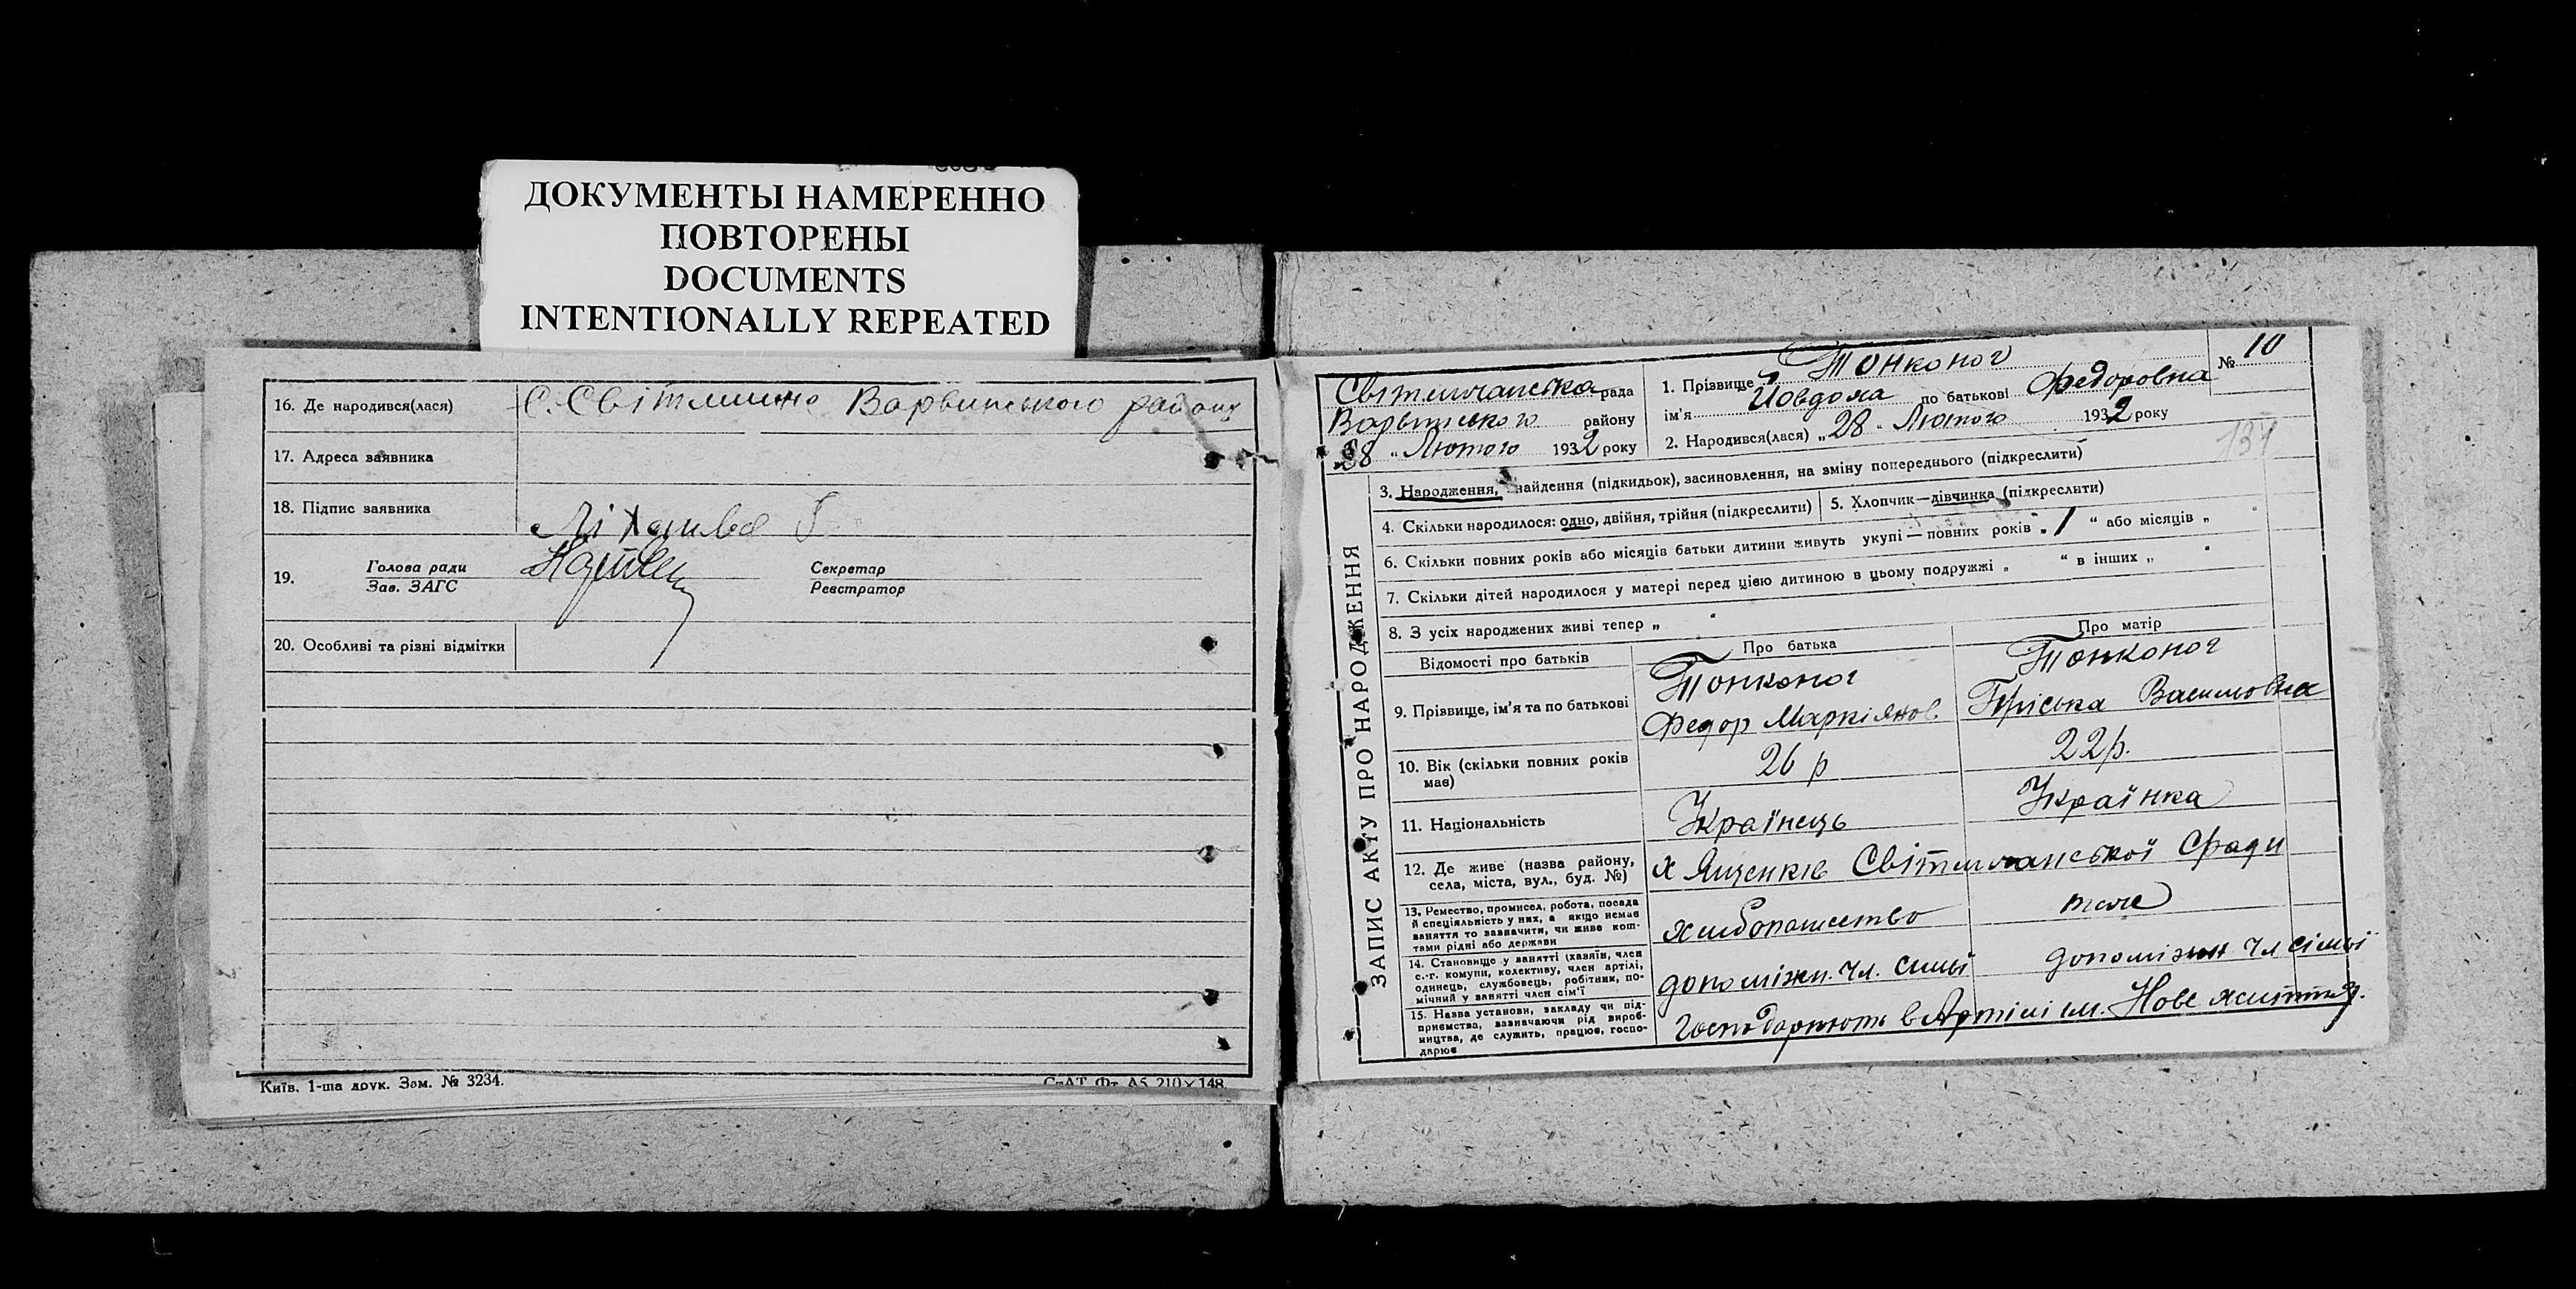 ДОКУМЕНТЫ НАМЕРЕННО
ПОВТОРЕНЫ
DOCUMENTS
INTENTIONALLY REPEATED
16. Де народився(лася) С. Світличне Варвинського району
17. Адреса заявника
18. Підпис заявника
19. Голова ради
Зав. ЗАГС
Секретар
Реєстратор
20. Особливі та різні відмітки
Київ. 1-ша друк. Зам. № 3234.
А5 210×148
Світличанська рада
Варвинського району
28 „ Лютого 1932 року
1. Прізвище Тонконог
ім'я Йовдоха по батькові Федоровна
№ 10
2. Народився(лася) „28 „ Лютого 1932 року
137
ЗАПИС АКТУ ПРО НАРОДЖЕННЯ
3. Народження, найдення (підкидьок), засиновлення, на зміну попереднього (підкреслити)
4. Скільки народилося: одно, двійня, трійня (підкреслити) 5. Хлопчик—дівчинка (підкреслити)
6. Скільки повних років або місяців батьки дитини живуть укупі — повних років „ 1 “ або місяців „ “
7. Скільки дітей народилося у матері перед цією дитиною в цьому подружжі „ “ в інших „ “
8. З усіх народжених живі тепер „ “
Відомості про батьків Про батька Про матір
9. Прізвище, ім'я та по батькові
Тонконог
Федор Маркіянов
Тонконог
Пріська Василовна
10. Вік (скільки повних років має) 26 р 22 р.
11. Національність Українець Українка
12. Де живе (назва району,
села, міста, вул., буд. №)
х Ященків Світличанської Сради
13. Ремество, промисел, робота, посада
й спеціяльність у них, а якщо немає
заняття то зазначити, чи живе кош-
тами рідні або держави
хлібопашество теж
14. Становище у занятті (хазяїн, член
с.-г. комуни, колективу, член артілі,
одинець, службовець, робітник, по-
мічний у занятті член сім'ї
допоміжн. чл. сімьї допоміжн чл сімьї
15. Назва установи, закладу чи під-
приємства, зазначаючи рід вироб-
ництва, де служить, працює, госпо-
дарює
Господарюють в Артілі ім. Нове життя.